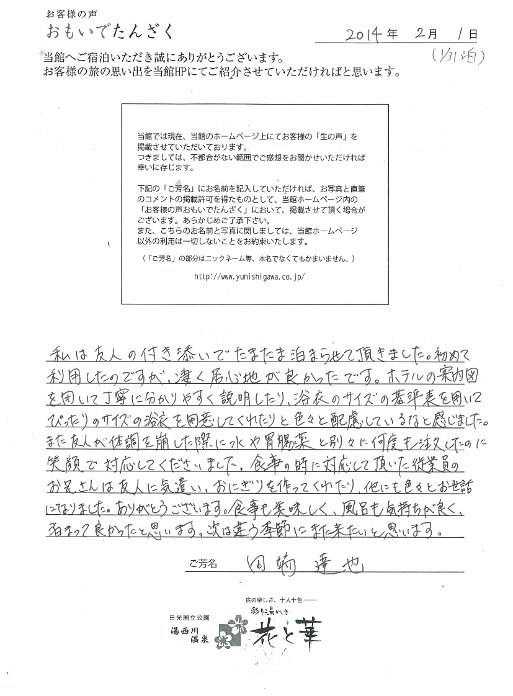 お客様の声
おもいでたんざく
2014年 2月 1日
(1/31泊)
当館へご宿泊いただき誠にありがとうございます。
お客様の旅の思い出を当館HPにてご紹介させていただければと思います。
当館では現在、当館のホームページ上にてお客様の「生の声」を
掲載させていただいております。
つきましては、不都合がない範囲でご感想をお聞かせいただければ
幸いに存じます。
下記の「ご芳名」にお名前を記入していただければ、お写真と直筆
のコメントの掲載許可を得たものとして、当館ホームページ内の
「お客様の声おもいでたんざく」において、掲載させて頂く場合が
ございます。あらかじめご了承下さい。
また、こちらのお名前と写真に関しましては、当館ホームページ
以外の利用は一切しないことをお約束いたします。
(「ご芳名」の部分はニックネーム等、本名でなくてもかまいません。)
http://www.yunishigawa.co.jp/
私は友人の付き添いでたまたま泊まらせて頂きました。初めて
利用したのですが、凄く居心地が良かったです。ホテルの案内図
を用いて丁寧に分かりやすく説明したり、浴衣のサイズの基準表を用いて
ぴったりのサイズの浴衣を用意してくれたりと色々と配慮しているなと感じました。
また友人が体調を崩した際に水や胃腸薬と別々に何度も注文したのに
笑顔で対応してくださいました。食事の時に対応して頂いた従業員の
お兄さんは友人に気遣い、おにぎりを作ってくれたり、他にも色々とお世話
になりました。ありがとうございます。食事も美味しく、風呂も気持ちが良く、
泊まって良かったと思います。次は違う季節にまた来たいと思います。
ご芳名 田 達也
旅の楽しさ、十人十色
日光国立公園
湯西川
温泉
花と華